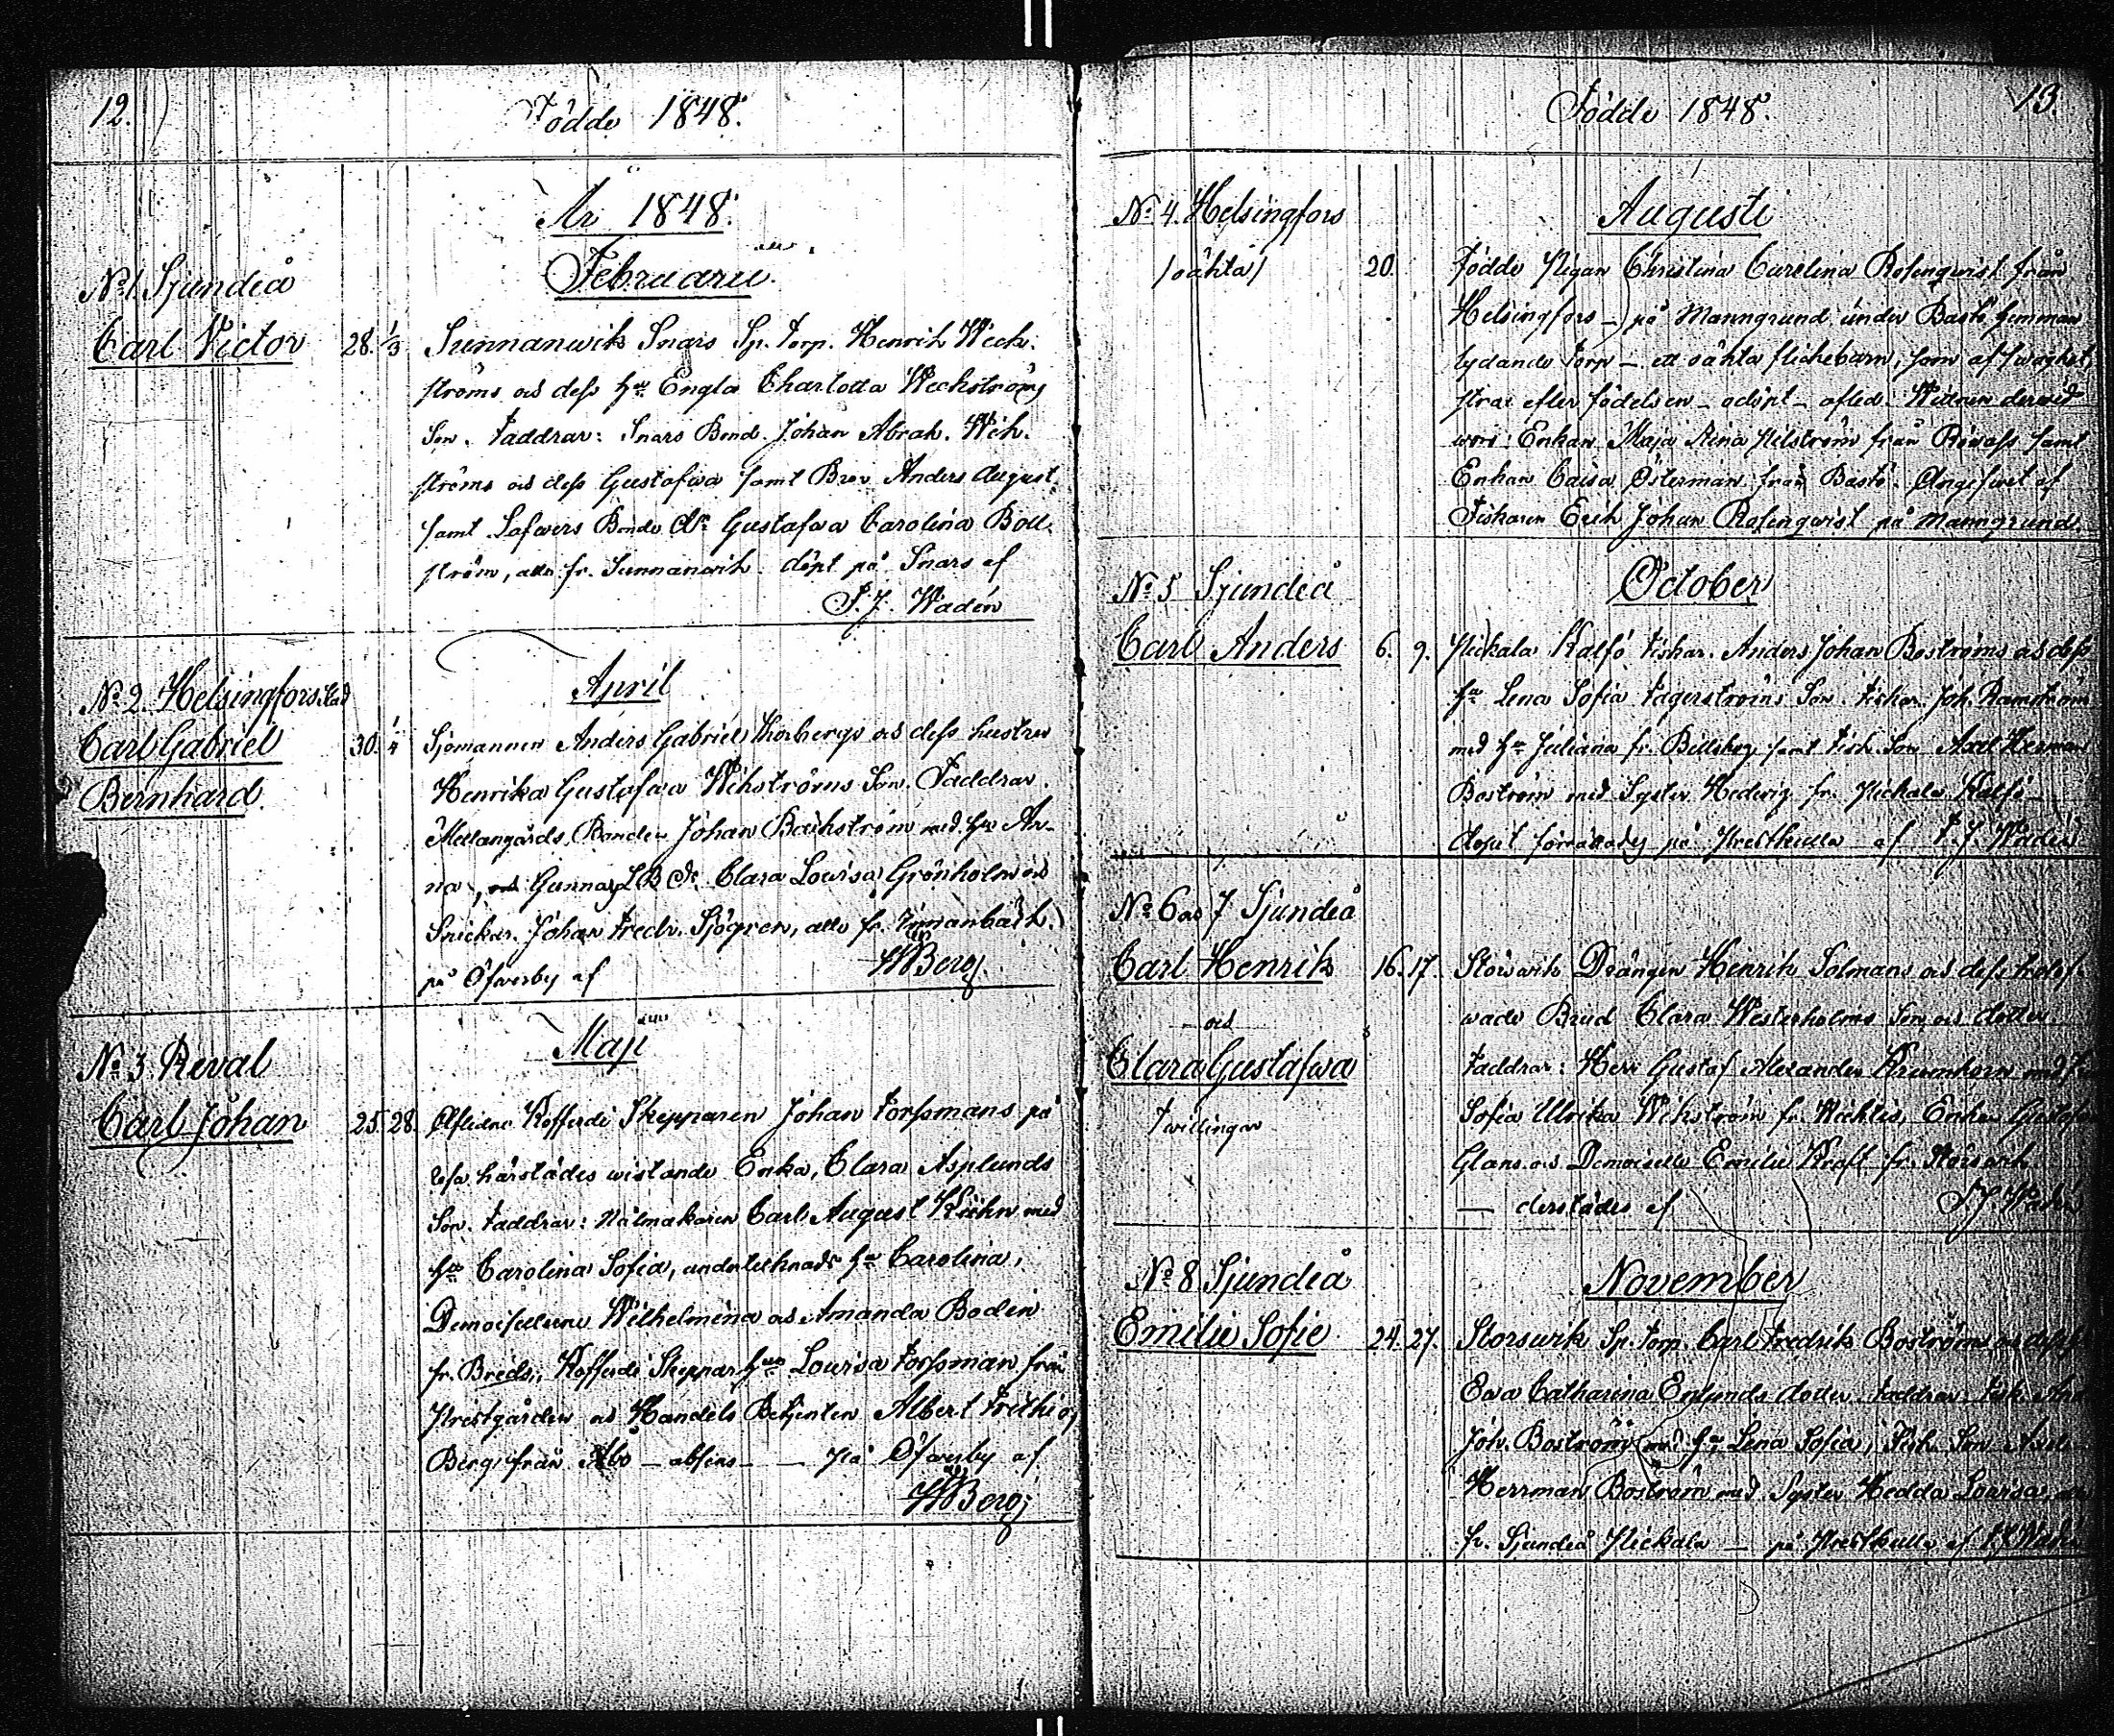 12.
Födde 1848.
År 1848.
Februarii
No 1. Sjundeå
Carl Victor 28. 1/3 Sunnanwik Snars Sp. torp. Henrik Weck-
ströms och dess hu Engla Charlotta Weckströms
Son. Faddrar: Snars Bond. Johan Abrah. Wik-
ströms och dess Gustafwa samt Bror Anders August
samt Safwers Bonde Dr Gustafwa Carolina Boll-
ström, alla fr. Sunnanwik döpt på Snars af
F. J. Wadén
April
No 2. Helsingfors stad
Carl Gabriel 30. 1/4 Sjömannen Anders Gabriel Thorbergs och dess hustru
Bernhard. Henrika Gustafwa Wikströms Son. Faddrar.
Mellangårds Bonden Johan Backström med hu An-
na, Gunnars L B Dr Clara Lowisa Grönholm och
Snickar. Johan Fredr. Sjögren, alla fr. Innanbäck.
på Öfwerby af WBerg.
Maji
No 3. Reval
Carl Johan 25. 28. Aflidne Kofferdi Skepparen Johan Forssmans på
resa härstädes wistande Enka, Clara Asplunds
Son. Faddrar: Nålmakaren Carl August Kühn med
hu Carolina Sofia, undertecknads hu Carolina,
Demoisellerne Wilhelmina och Amanda Bodin
fr. Breds, Kofferdi Skeppar hun Lowisa Forssman från
Prestgården och Handels Betjenten Albert Frithiof
Berg från Åbo – absens – – på Öfwerby af
WBerg
13.
Födde 1848.
No 4. Helsingfors
Augusti
/oäkta/ 20. Födde Pigan Christina Carolina Rosenqwist från
Helsingfors – på Manngrund under Bastö hemman
lydande torp – ett oäkta flickebarn, som af swaghet,
strax efter födelsen – odöpt – afled. Wittnen derwid
woro: Enkan Maja Stina Nilström från Räwass samt
Enkan Caisa Österman från Bastö. Angifwet af
Fiskaren Erik Johan Rosenqwist på Manngrund
October
No 5 Sjundeå
Carl Anders 6. 9. Pickala Kalfö Fiskar. Anders Johan Boströms och dess
hu Lena Sofia Fagerströms Son. Fiskar. Joh. Ramström
med hu Juliana fr. Billskog samt Fisk. Son Axel Herman
Boström med Syster Hedwig fr. Pickala Kalfö –
dopet förrättades på Prestkulla af F. J. Wadén
No 6 och 7 Sjundeå
Carl Henrik 16. 17. Störswik Drängen Henrik Solmans och dess trolof-
och wade Brud Clara Westerholms Son och dotter
Clara Gustafwa Faddrar: Herr Gustaf Alexander med
Twillingar Sofia Ulrika Wikström fr. Wicklis, Enkan Gustafwa
Glans och Demoiselle Emilie Kraft fr. Störswik
– derstädes af F. J. Wadén
No 8 Sjundeå
November
Emilie Sofie 24. 27. Störswik Sp. torp. Carl Fredrik Boströms och dess h
Ewa Catharina Englunds dotter. Faddrar. Fisk.
Joh. Boström med hu Lena Sofia, Fisk. Son Axel
Herrman Boström med Syster Hedda Lowisa,
fr. Sjundeå Pickala – på Prestkulla af F J Wadén